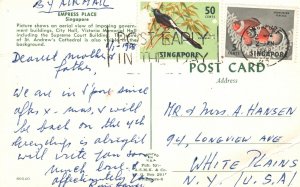 BY AIR MAIL
EMPRESS PLACE
Singapore
Picture shows an aerial view of imposing government buildings, City Hall, Victoria Memorial Hall
including the Supreme Court Building
of St. Andrew's Cathedral is also visible
Dearest mother &
father,
We are in S'pore since
after x-mas, & will
be back on the 4th
Everybody is alright
will write you soon
much love,
50
CENTS
SINGAPORE
SINGAPORE
POST EARLY
IN THE DAY
POST CARD
Address
Mr & Mrs A. HANSEN
94, LONGVIEW AVE
WHITE PLAINS
N.Y. (U.S.A)